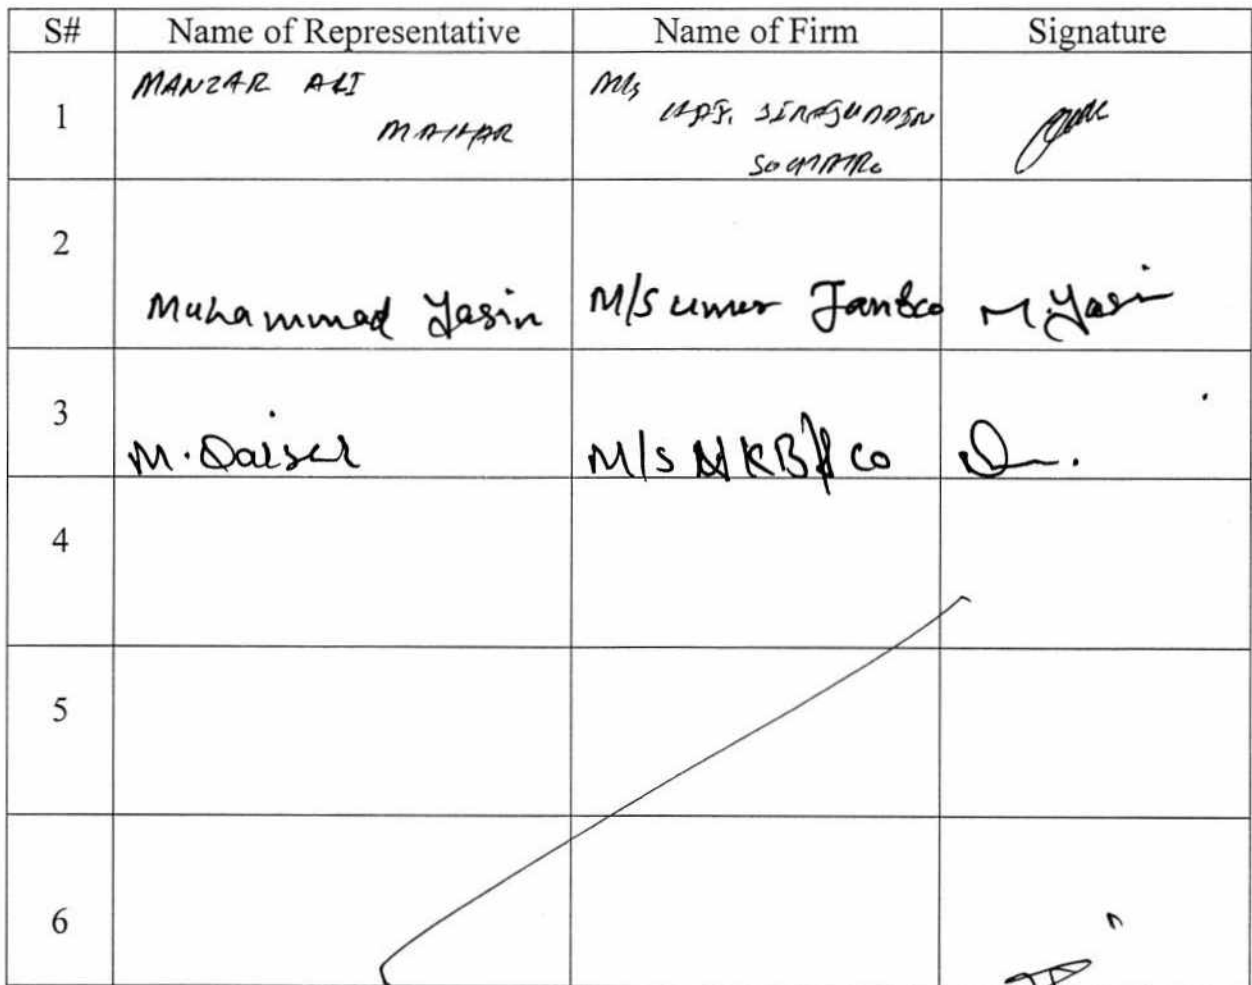 S# Name of Representative Name of Firm Signature
1 MANZAR ALI M/s
MAHAR HAJI. SIRAJUDDIN
SOOMRO
2
Muhammad Yasin M/S umer Jan&co M.Yasin
3
M. Qaiser M/s MKB & co
4
5
6